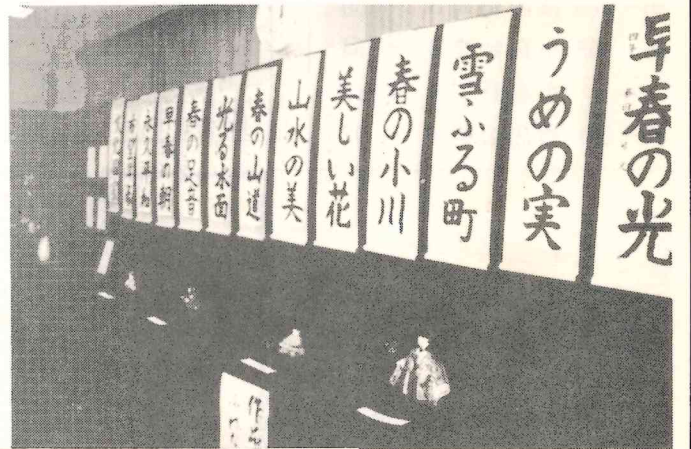 早春の光
うめの実
雪ふる町
春の小川
美しい花
山水の美
春の山道
光る水面
春の足音
早春の朝
永久平和
作品